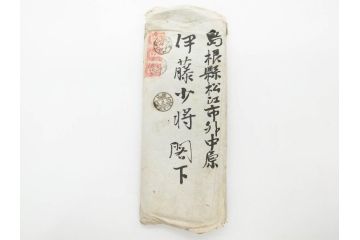 島根縣松江市外中原
伊藤少将閣下